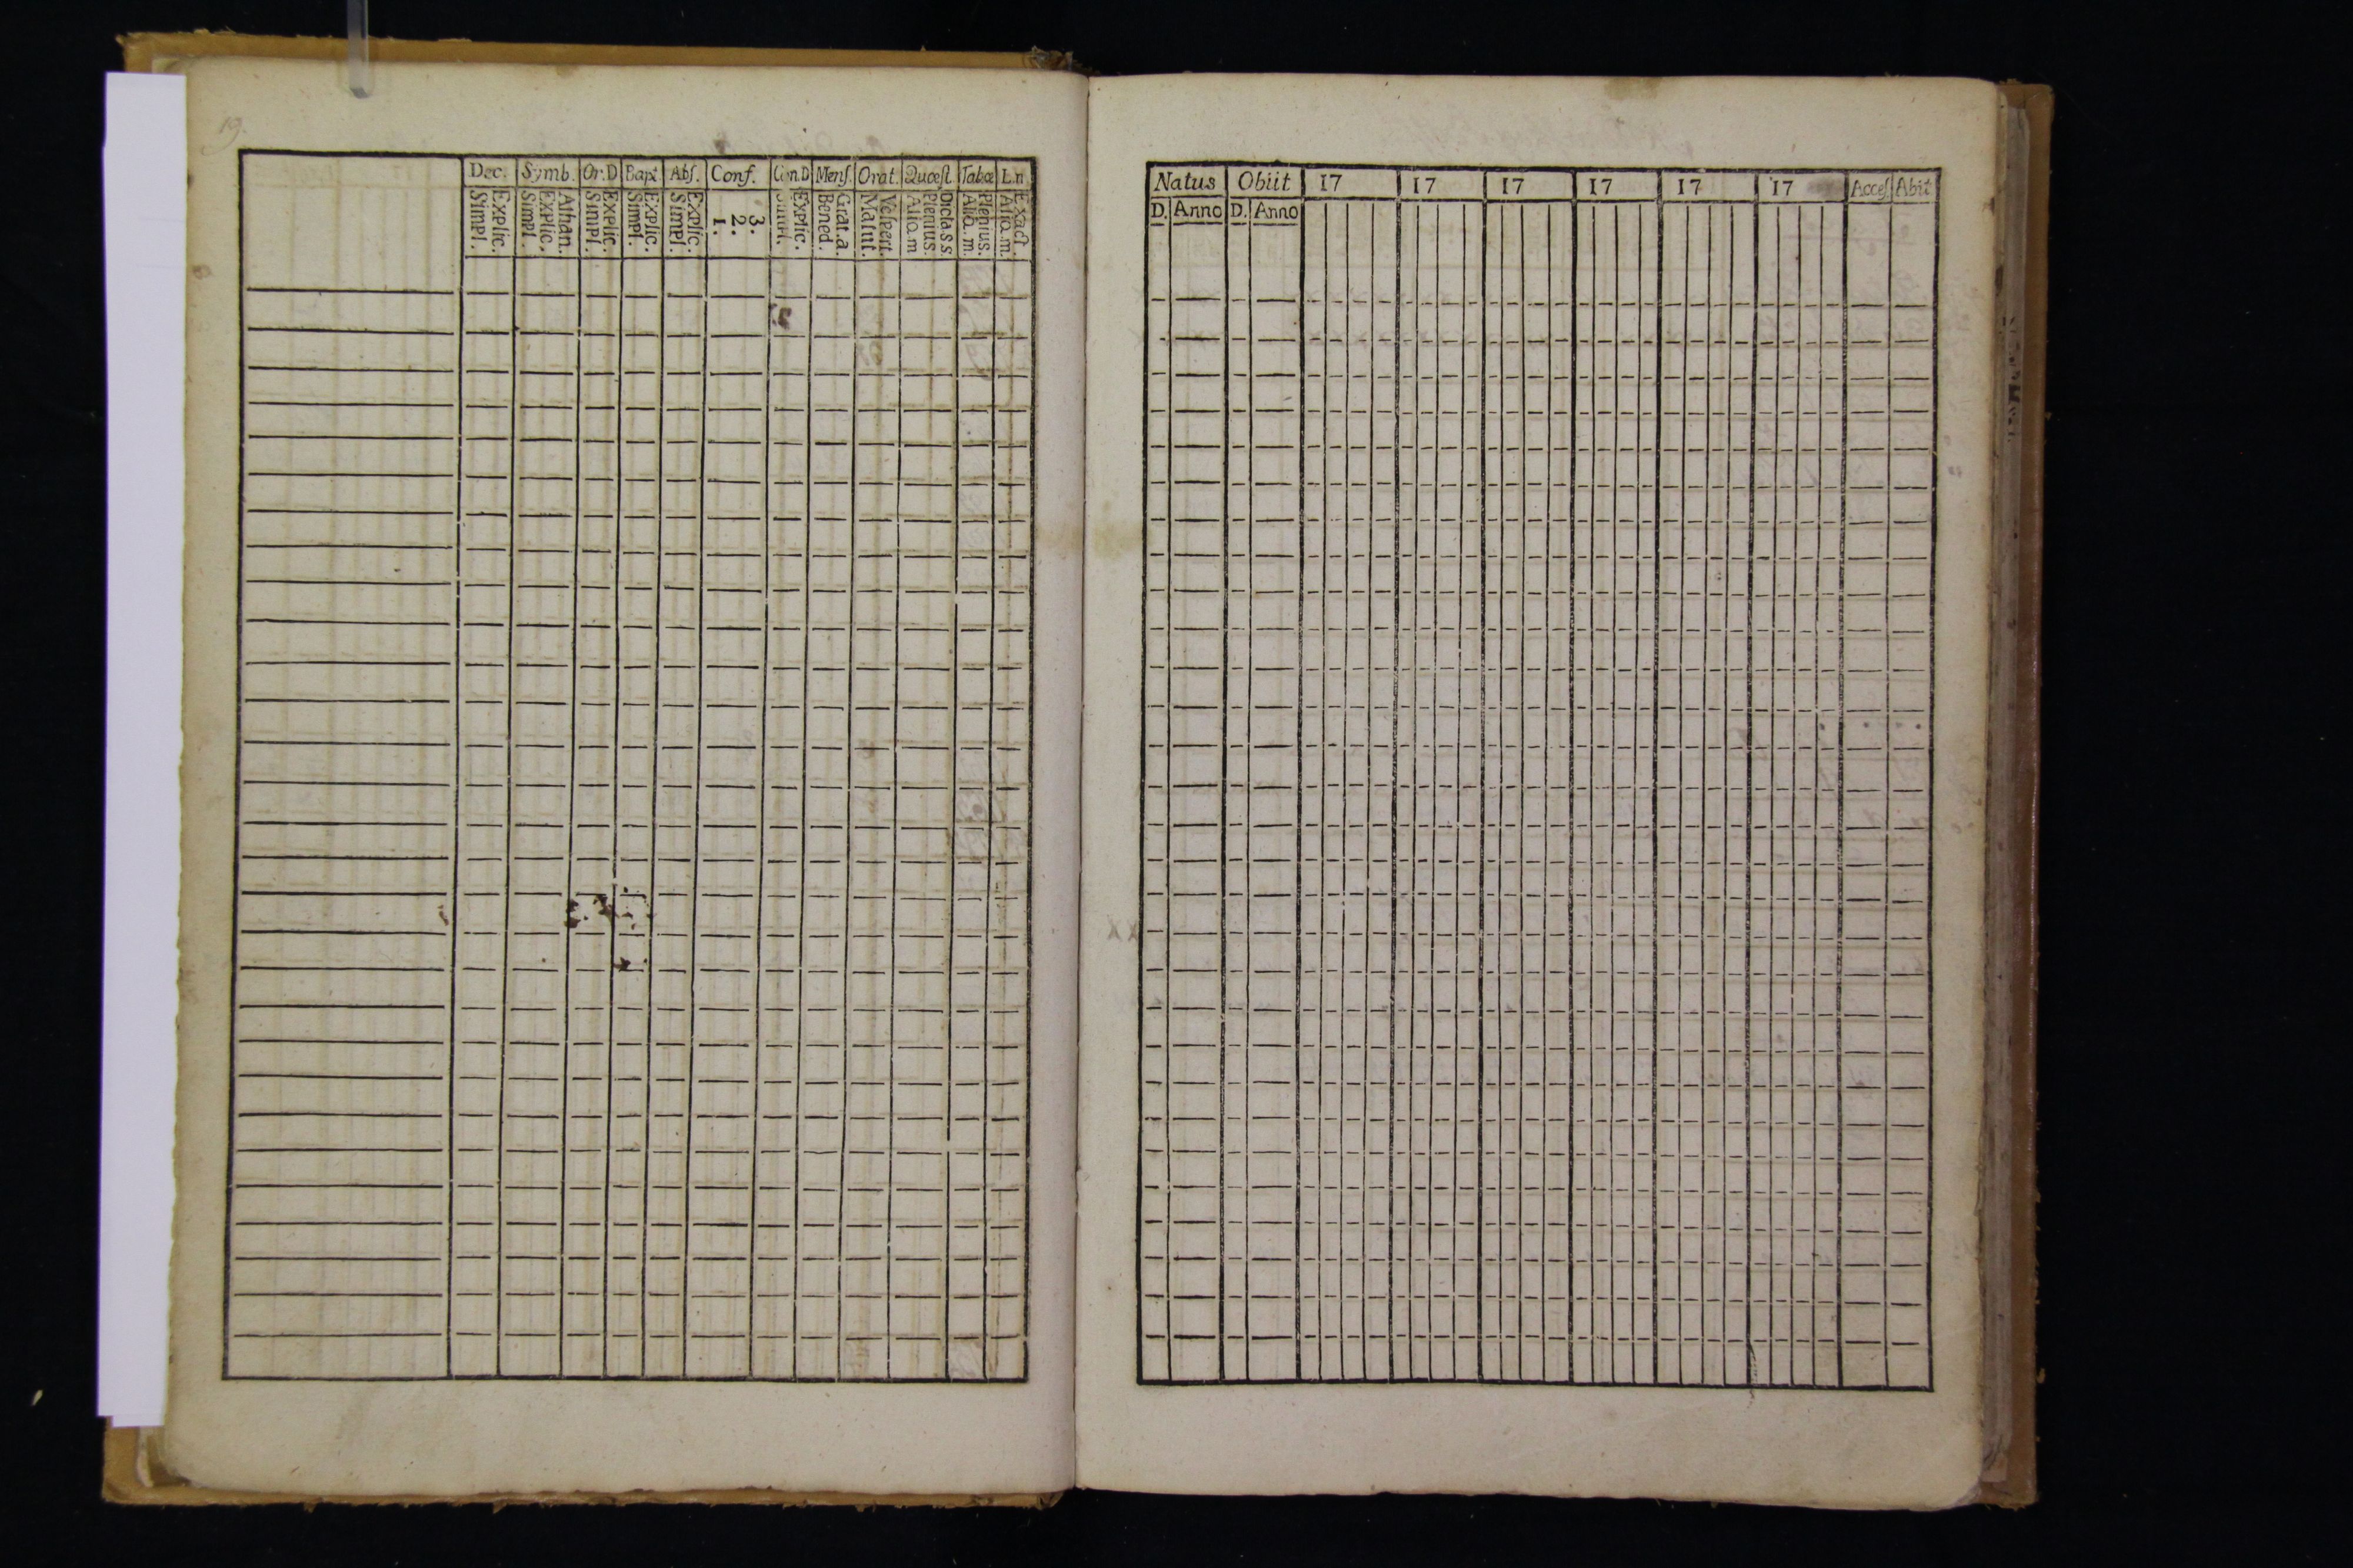 19.
Dec. Symb. Or.D Bapt Abſ. Conf. Cœn.D Menſ. Orat. Quœſt Tabœ L.n
Simpl. Explic. Simpl. Explic. Athan. Simpl. Explic. Simpl. Explic. Simpl. Explic. 1. 2. 3. Simpl. Explic. Bened. Grat.a. Matut. Veſpert. Aliq.m Plenius. Dictass Aliq.m. Plenius. Aliq.m. Exact
Natus Obiit 17 17 17 17 17 17 Acceſ. Abit
D. Anno D. Anno